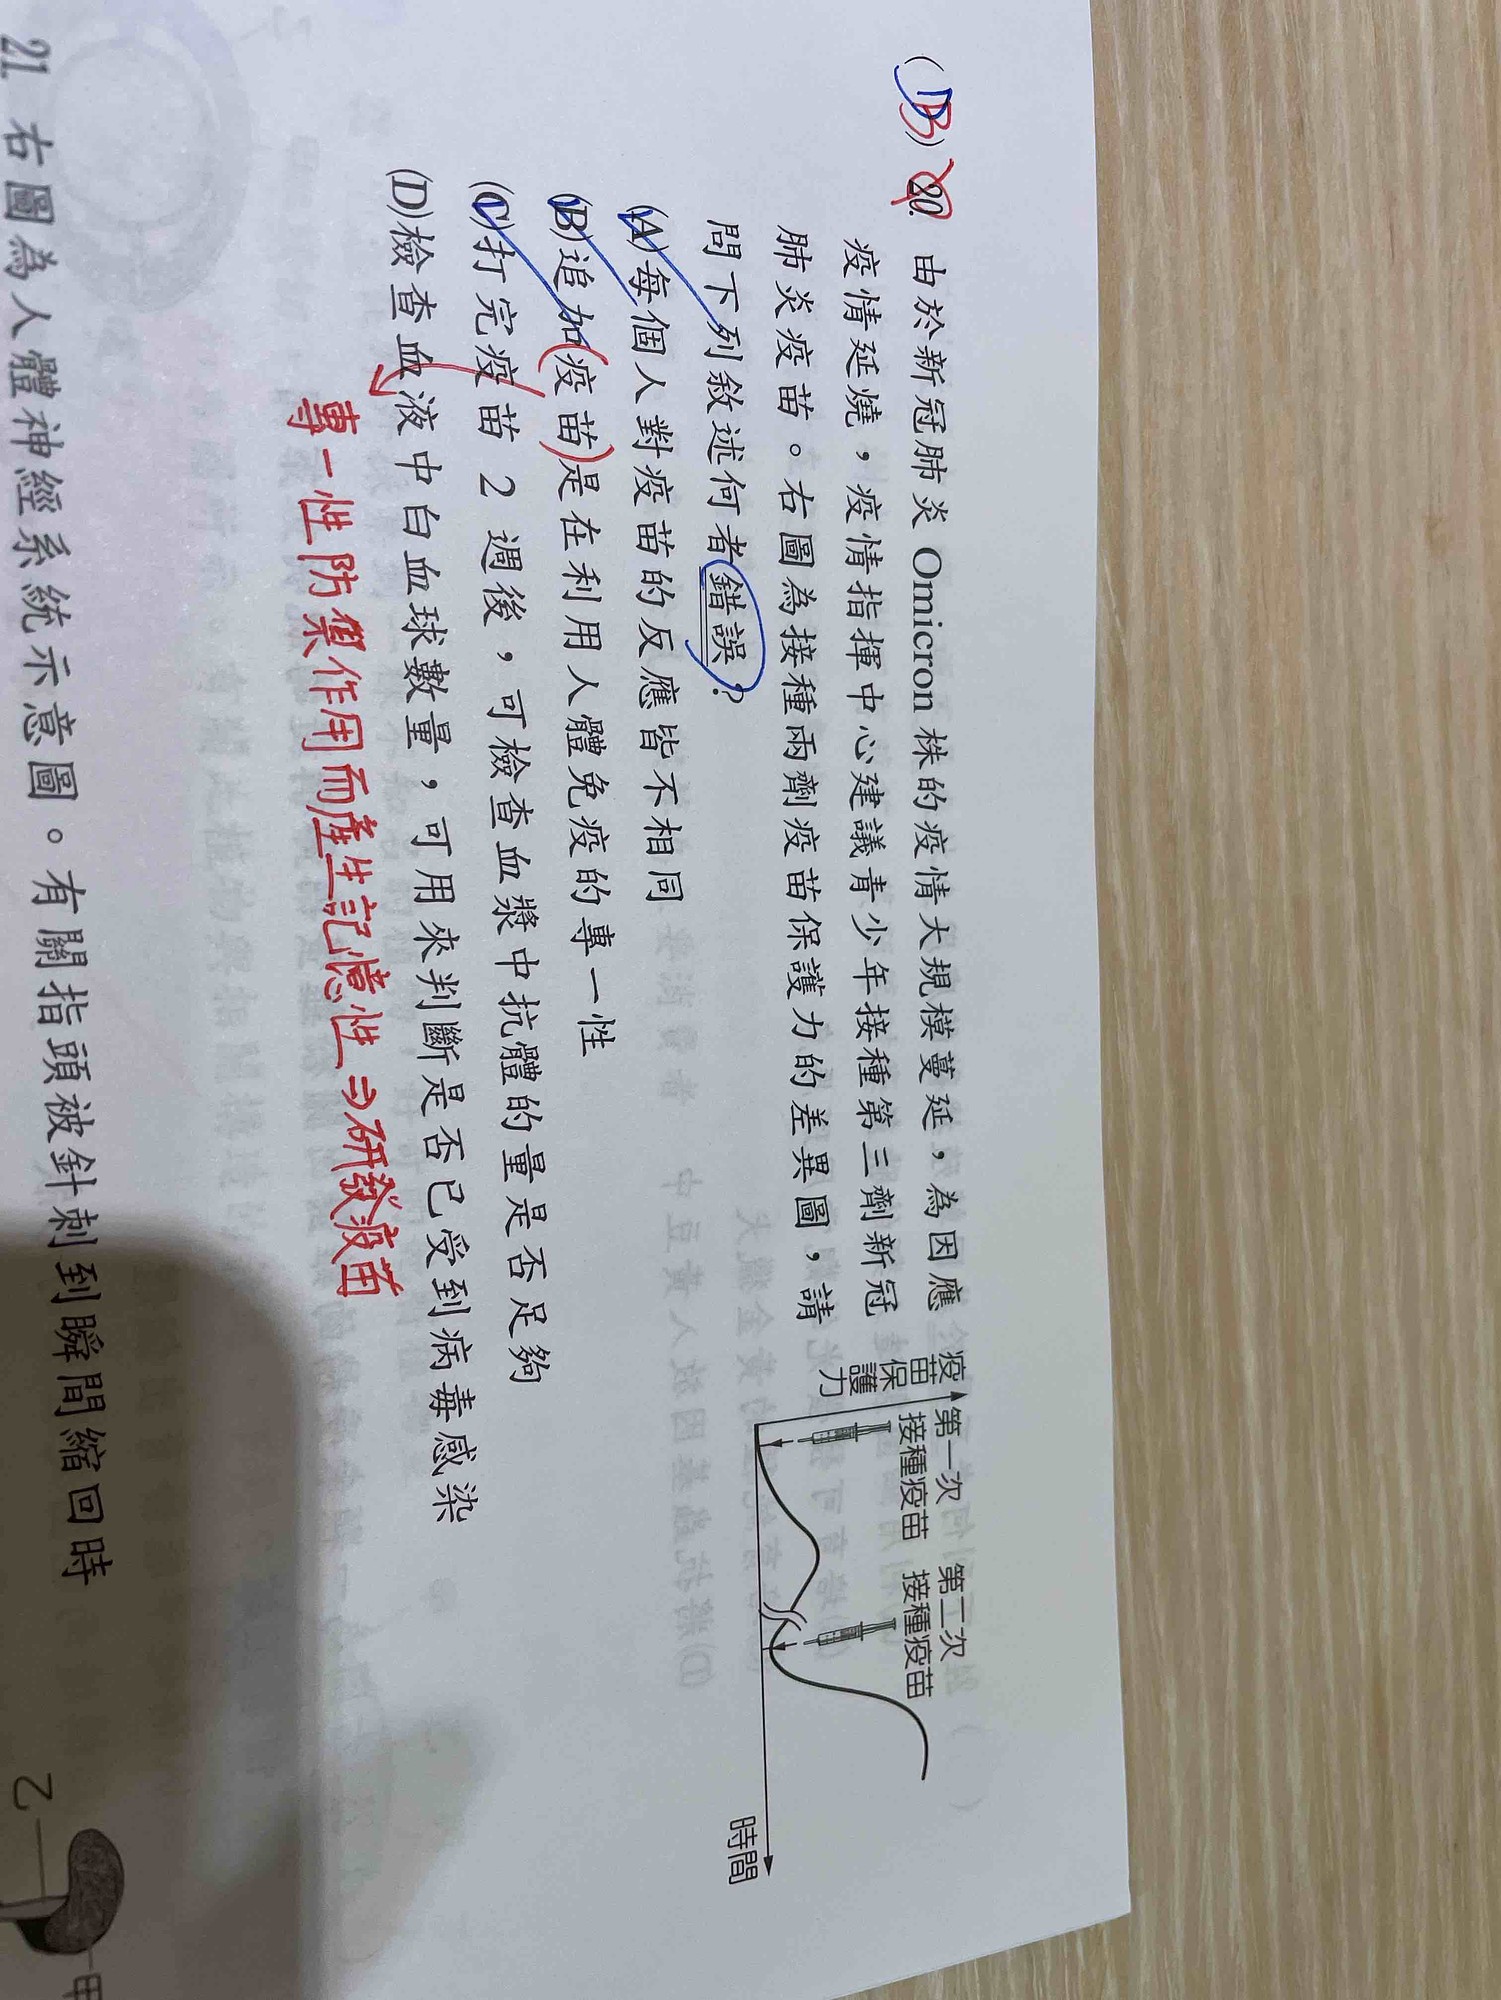 (DB) 20. 由於新冠肺炎 Omicron 株的疫情大規模蔓延，為因應
疫情延燒，疫情指揮中心建議青少年接種第三劑新冠
肺炎疫苗。右圖為接種兩劑疫苗保護力的差異圖，請
問下列敘述何者錯誤？
(A)每個人對疫苗的反應皆不相同
(B)追加(疫苗)是在利用人體免疫的專一性
(C)打完疫苗 2 週後，可檢查血漿中抗體的量是否足夠
(D)檢查血液中白血球數量，可用來判斷是否已受到病毒感染
專一性防禦作用而產生記憶性⇒研發疫苗
疫苗保護力
第一次
接種疫苗
第二次
接種疫苗
時間
21. 右圖為人體神經系統示意圖。有關指頭被針刺到瞬間縮回時
乙
甲